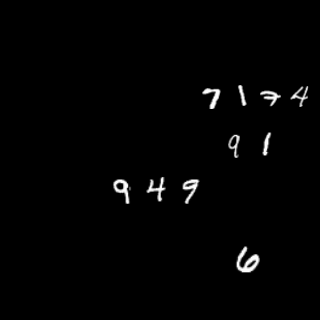 7174
91
949
6